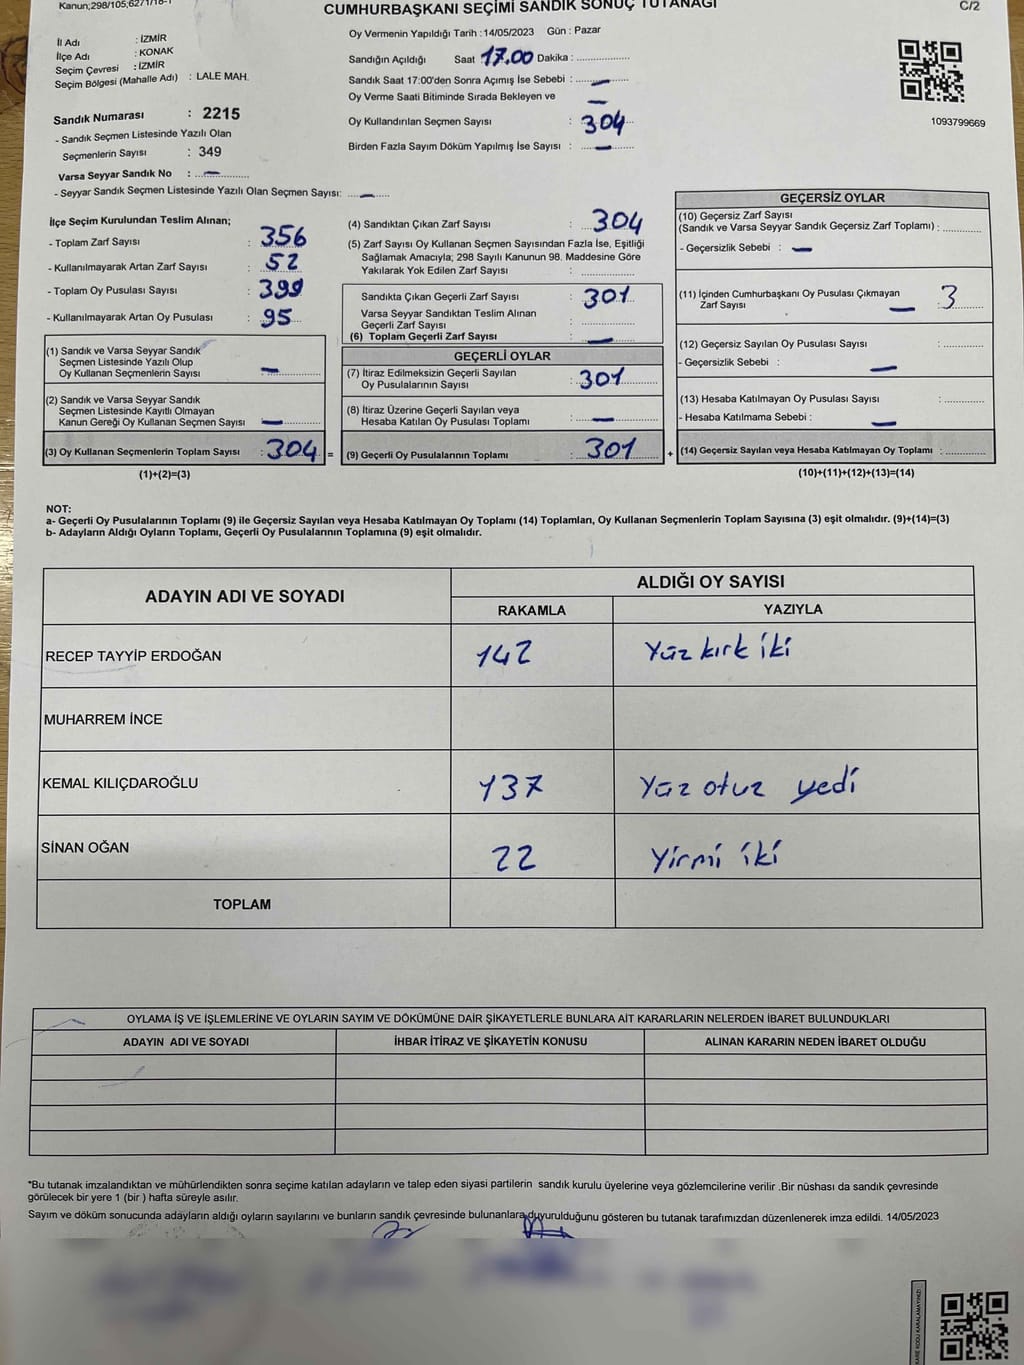 Kanun;298/105;62/1/16-1
CUMHURBAŞKANI SEÇİMİ SANDIK SONUÇ TUTANAĞI
C/2
İl Adı : İZMİR
İlçe Adı : KONAK
Seçim Çevresi : İZMİR
Seçim Bölgesi (Mahalle Adı) : LALE MAH.
Sandık Numarası : 2215
- Sandık Seçmen Listesinde Yazılı Olan
Seçmenlerin Sayısı : 349
Varsa Seyyar Sandık No : —
- Seyyar Sandık Seçmen Listesinde Yazılı Olan Seçmen Sayısı: —
Oy Vermenin Yapıldığı Tarih :14/05/2023 Gün : Pazar
Sandığın Açıldığı Saat 17.00 Dakika :
Sandık Saat 17:00'den Sonra Açımış İse Sebebi : —
Oy Verme Saati Bitiminde Sırada Bekleyen ve —
Oy Kullandırılan Seçmen Sayısı : 304
Birden Fazla Sayım Döküm Yapılmış İse Sayısı : —
1093799669
İlçe Seçim Kurulundan Teslim Alınan;
- Toplam Zarf Sayısı : 356
- Kullanılmayarak Artan Zarf Sayısı : 52
- Toplam Oy Pusulası Sayısı : 399
- Kullanılmayarak Artan Oy Pusulası : 95
(1) Sandık ve Varsa Seyyar Sandık
Seçmen Listesinde Yazılı Olup
Oy Kullanan Seçmenlerin Sayısı : —
(2) Sandık ve Varsa Seyyar Sandık
Seçmen Listesinde Kayıtlı Olmayan
Kanun Gereği Oy Kullanan Seçmen Sayısı : —
(3) Oy Kullanan Seçmenlerin Toplam Sayısı : 304 =
(1)+(2)=(3)
(4) Sandıktan Çıkan Zarf Sayısı : 304
(5) Zarf Sayısı Oy Kullanan Seçmen Sayısından Fazla İse, Eşitliği
Sağlamak Amacıyla; 298 Sayılı Kanunun 98. Maddesine Göre
Yakılarak Yok Edilen Zarf Sayısı :
Sandıkta Çıkan Geçerli Zarf Sayısı : 301
Varsa Seyyar Sandıktan Teslim Alınan
Geçerli Zarf Sayısı :
(6) Toplam Geçerli Zarf Sayısı : —
GEÇERLİ OYLAR
(7) İtiraz Edilmeksizin Geçerli Sayılan
Oy Pusulalarının Sayısı : 301
(8) İtiraz Üzerine Geçerli Sayılan veya
Hesaba Katılan Oy Pusulası Toplamı : —
(9) Geçerli Oy Pusulalarının Toplamı : 301 +
GEÇERSİZ OYLAR
(10) Geçersiz Zarf Sayısı
(Sandık ve Varsa Seyyar Sandık Geçersiz Zarf Toplamı) :
- Geçersizlik Sebebi : —
(11) İçinden Cumhurbaşkanı Oy Pusulası Çıkmayan 3
Zarf Sayısı —
(12) Geçersiz Sayılan Oy Pusulası Sayısı :
- Geçersizlik Sebebi : —
(13) Hesaba Katılmayan Oy Pusulası Sayısı :
- Hesaba Katılmama Sebebi : —
(14) Geçersiz Sayılan veya Hesaba Katılmayan Oy Toplamı :
(10)+(11)+(12)+(13)=(14)
NOT:
a- Geçerli Oy Pusulalarının Toplamı (9) ile Geçersiz Sayılan veya Hesaba Katılmayan Oy Toplamı (14) Toplamları, Oy Kullanan Seçmenlerin Toplam Sayısına (3) eşit olmalıdır. (9)+(14)=(3)
b- Adayların Aldığı Oyların Toplamı, Geçerli Oy Pusulalarının Toplamına (9) eşit olmalıdır.
ADAYIN ADI VE SOYADI
ALDIĞI OY SAYISI
RAKAMLA YAZIYLA
RECEP TAYYİP ERDOĞAN 142 Yüz kırk iki
MUHARREM İNCE
KEMAL KILIÇDAROĞLU 137 Yüz otuz yedi
SİNAN OĞAN 22 Yirmi iki
TOPLAM
OYLAMA İŞ VE İŞLEMLERİNE VE OYLARIN SAYIM VE DÖKÜMÜNE DAİR ŞİKAYETLERLE BUNLARA AİT KARARLARIN NELERDEN İBARET BULUNDUKLARI
ADAYIN ADI VE SOYADI İHBAR İTİRAZ VE ŞİKAYETİN KONUSU ALINAN KARARIN NEDEN İBARET OLDUĞU
*Bu tutanak imzalandıktan ve mühürlendikten sonra seçime katılan adayların ve talep eden siyasi partilerin sandık kurulu üyelerine veya gözlemcilerine verilir .Bir nüshası da sandık çevresinde
görülecek bir yere 1 (bir ) hafta süreyle asılır.
Sayım ve döküm sonucunda adayların aldığı oyların sayılarını ve bunların sandık çevresinde bulunanlara duyurulduğunu gösteren bu tutanak tarafımızdan düzenlenerek imza edildi. 14/05/2023